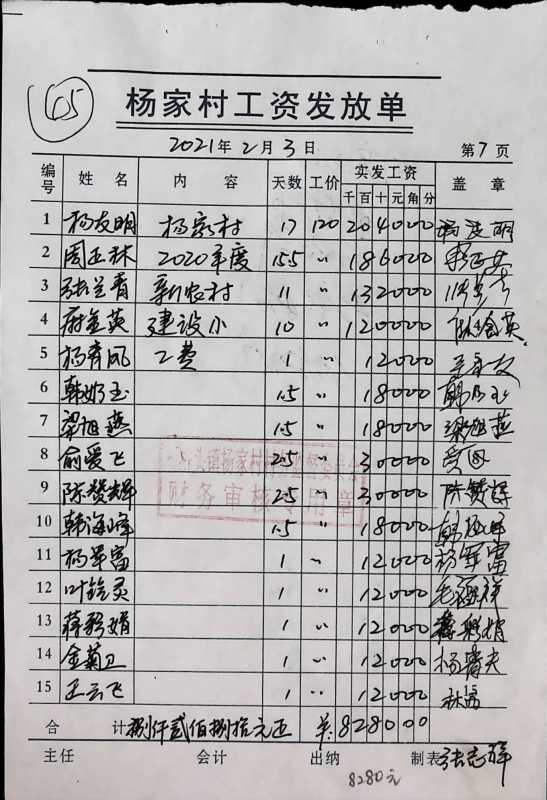 65
杨家村工资发放单
2021年2月3日 第7页
编号 姓名 内容 天数 工价 实发工资 盖章
千百十元角分
1 杨友明 杨家村 17 120 204000
2 周正林 2020年度 15.5 〃 186000
3 张兰青 新农村 11 〃 132000
4 金英 建设小 10 〃 120000
5 杨有凤 工费 1 〃 12000
6 韩娇玉 1.5 〃 18000
7 梁旭燕 1.5 〃 18000 梁旭燕
8 俞爱飞 2.5 〃 30000
9 陈赞辉 2.5 〃 30000 陈赞辉
10 韩海峰 1.5 〃 18000 韩海峰
11 杨军富 1 〃 12000 杨军富
12 叶 灵 1 〃 12000 毛 祥
13 蒋 娟 1 〃 12000
14 金菊卫 1 〃 12000 杨 夫
15 王云飞 1 〃 12000 林
头镇杨家村村务监督委员会
财务审核专用章
合计 捌仟贰佰捌拾元正 ¥:828000
主任 会计 出纳 制表 张志
8280元